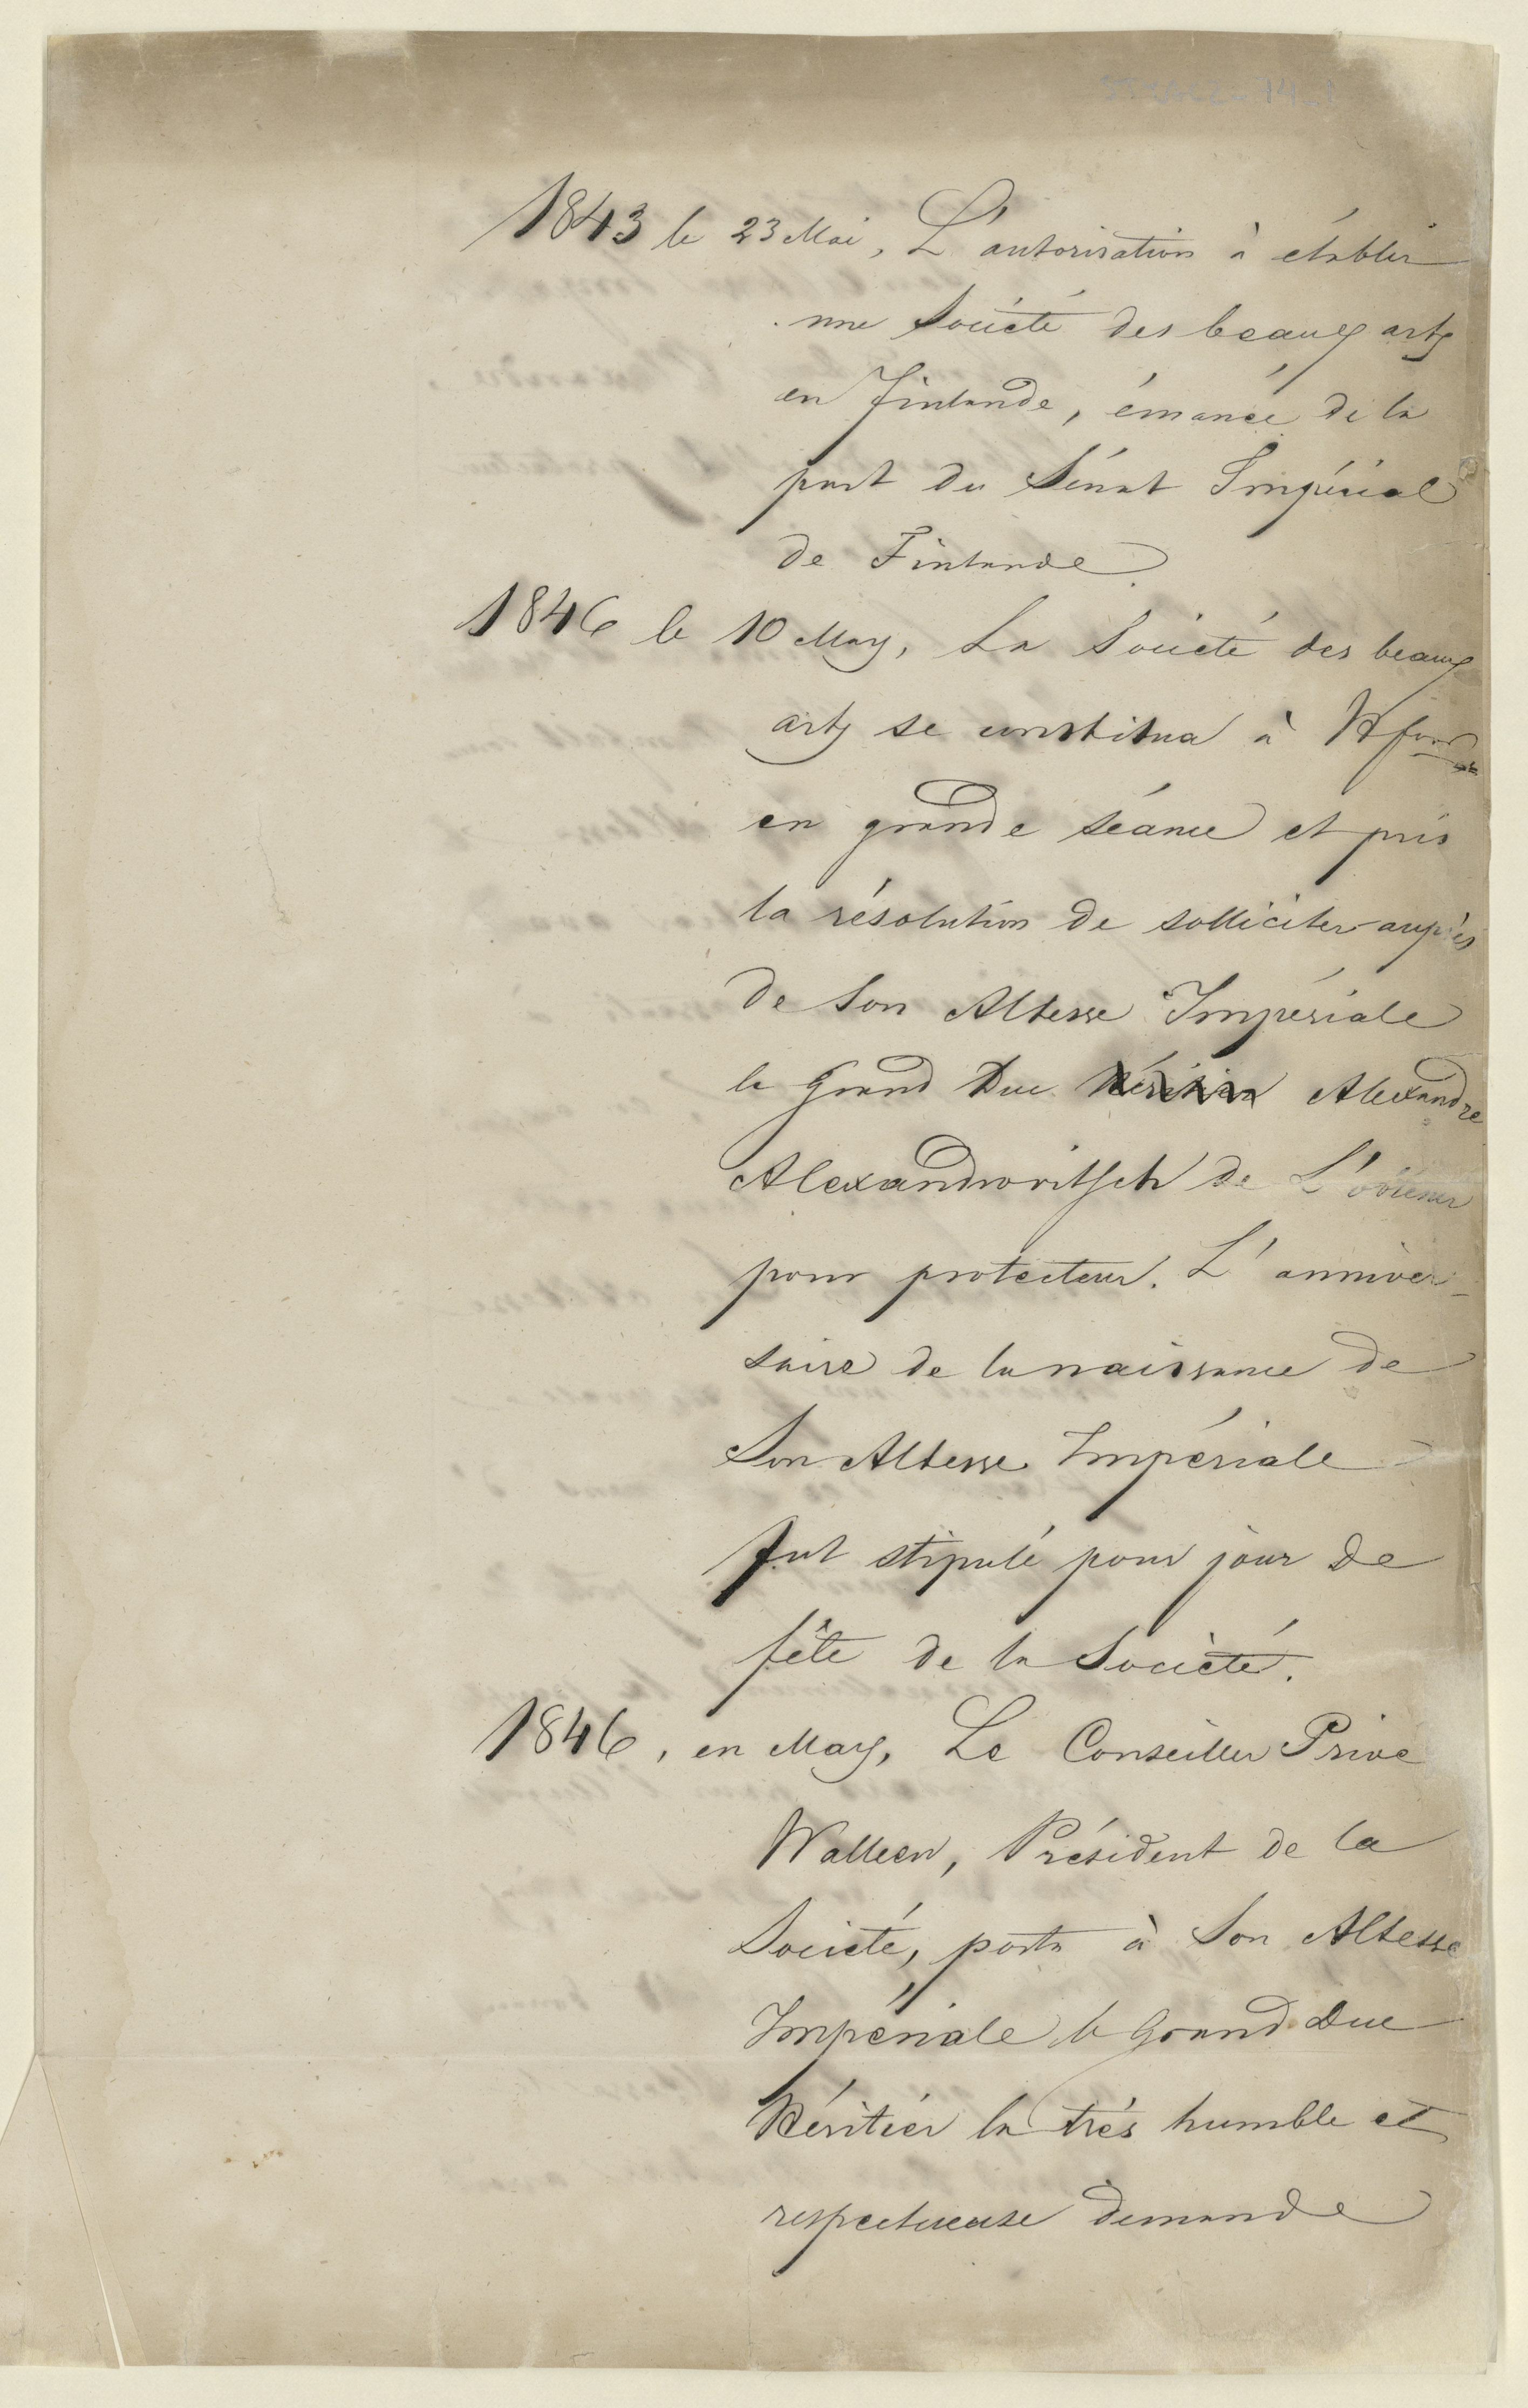 1843 le 23 Mai, L'autorisation à établir
une Société des beaux arts
en Finlande, émanée de la
part du Sénat Impérial
de Finlande.
1846 le 10 May, La Société des beaux
arts se constitua à Hfors
en grande séance et pris
la résolution de solliciter auprès
de Son Altesse Impériale
le Grand Duc Héritier Alexandre
Alexandrowitsch de L'obtenir
pour protecteur. L'anniver-
saire de la naissance de
Son Altesse Impériale
fut stipulé pour jour de
fête de la Société.
1846, en May, Le Conseiller Privé
Walleen, Président de la
Société, porta à Son Altesse
Impériale le Grand Duc
Héritiér la trés humble et
respectueuse demande